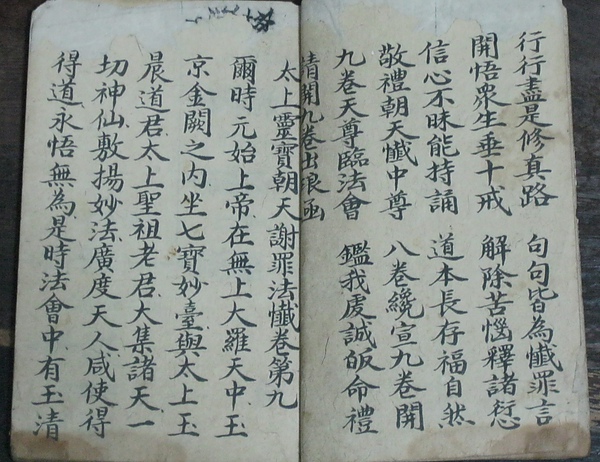 行行盡是修真路　句句皆為懺罪言
開悟眾生垂十戒　解除苦惱釋諸愆
信心不昧能持誦　道本長存福自然
敬禮朝天懺中尊　八卷纔宣九卷開
九卷天尊臨法會　鑑我虔誠皈命禮
開九卷出浪函
太上靈寶朝天謝罪法懺卷第九
爾時元始上帝在無上大羅天中玉
京金闕之內坐七寶妙臺與太上玉
晨道君太上聖祖老君大集諸天一
切神仙敷揚妙法廣度天人咸使得
得道永悟無為是時法會中有玉清